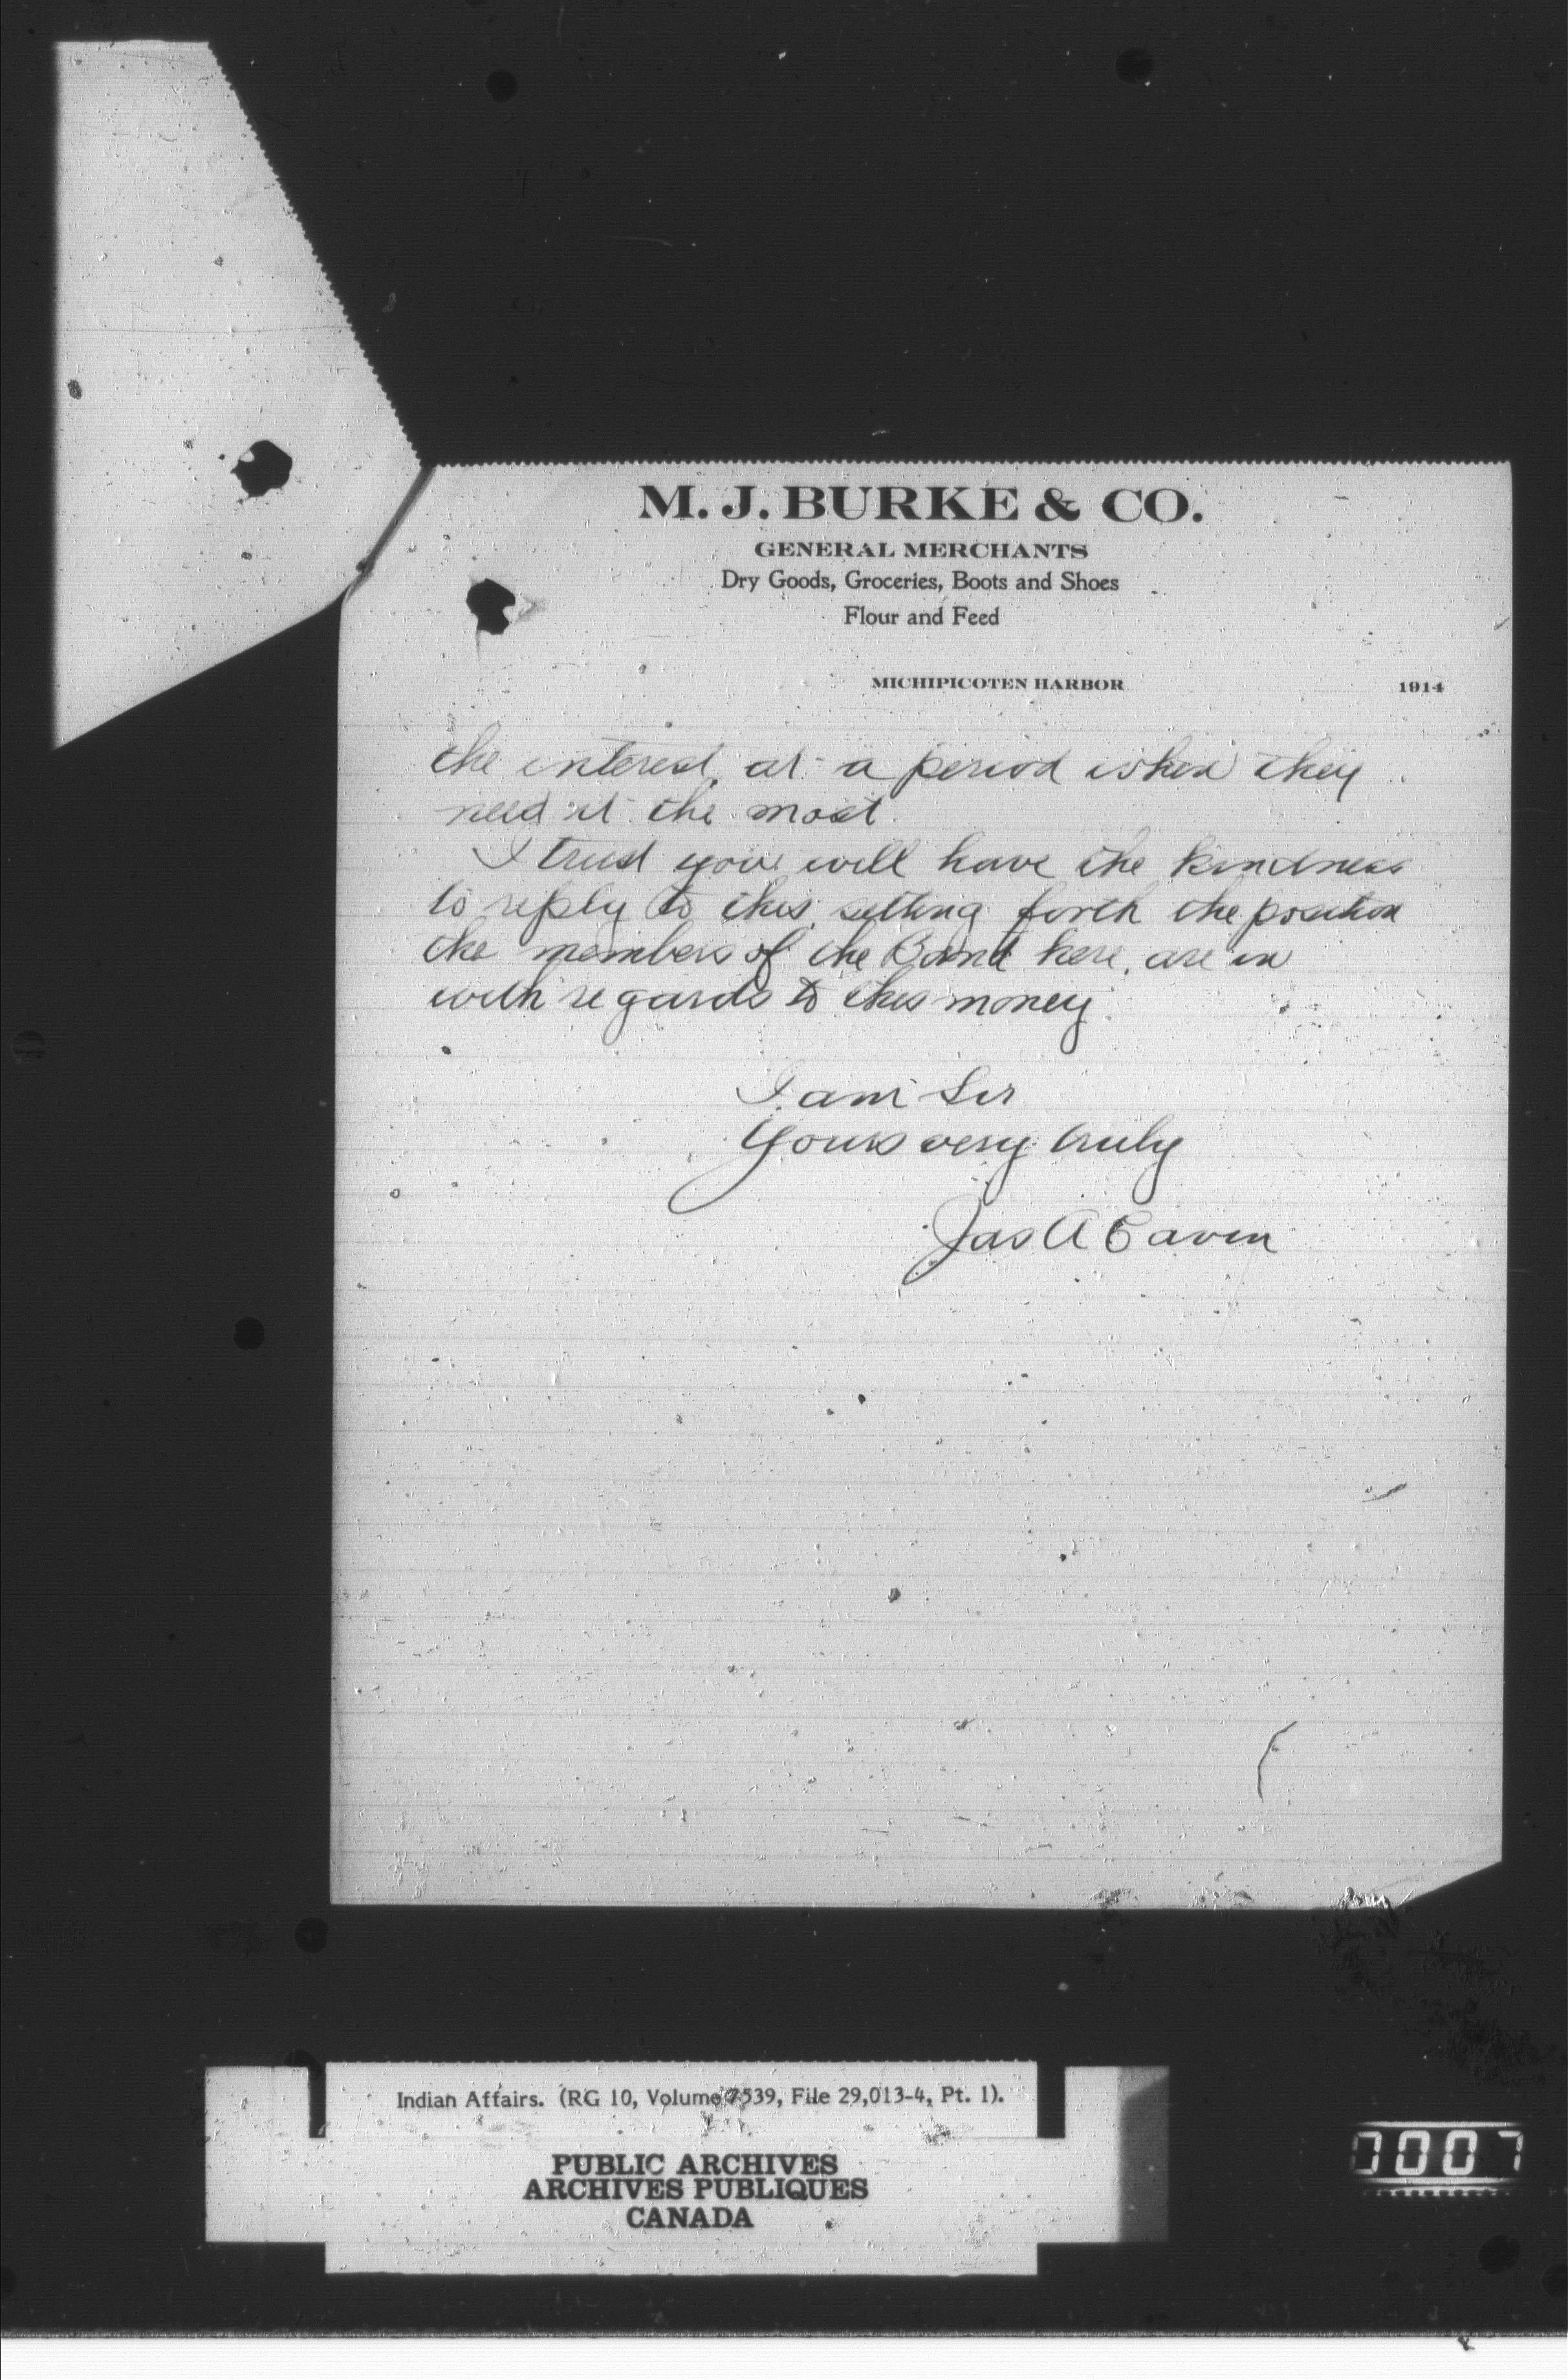 M. J. BURKE & CO.
GENERAL MERCHANTS
Dry Goods, Groceries, Boots and Shoes
Flour and Feed
MICHIPICOTEN HARBOR 1914
the interest, at a period when they
need it the most.
I trust you will have the kindness
to reply to this, setting forth the position
the members of the Band here, are in
with regards to this money.
I am Sir
Yours very truly
Jas A Caven
Indian Affairs. (RG 10, Volume 7539, File 29,013-4, Pt. 1).
PUBLIC ARCHIVES
ARCHIVES PUBLIQUES
CANADA
0007